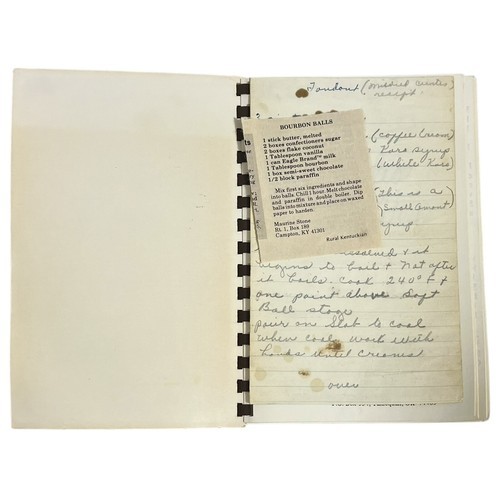 Fondant (Mildred
receipt.
(Coffee Cream)
Karo Syrup
(White Karo)
BOURBON BALLS
1 stick butter, melted
2 boxes confectioners sugar
2 boxes flake coconut
1 Tablespoon vanilla
1 can Eagle Brand™ milk
1 Tablespoon bourbon
1 box semi-sweet chocolate
1/2 block paraffin
Mix first six ingredients and shape
into balls. Chill 1 hour. Melt chocolate
and paraffin in double boiler. Dip
balls into mixture and place on waxed
paper to harden.
Maurine Stone
Rt. 1, Box 189
Campton, KY 41301
Rural Kentuckian
(this is a
(small amount
syrup
dissolved & it
begins to boil & Not after
it boils. Cook 240° &
one point above Soft
Ball stage
pour on Slab to cool
when cool work with
hands until Creams
over